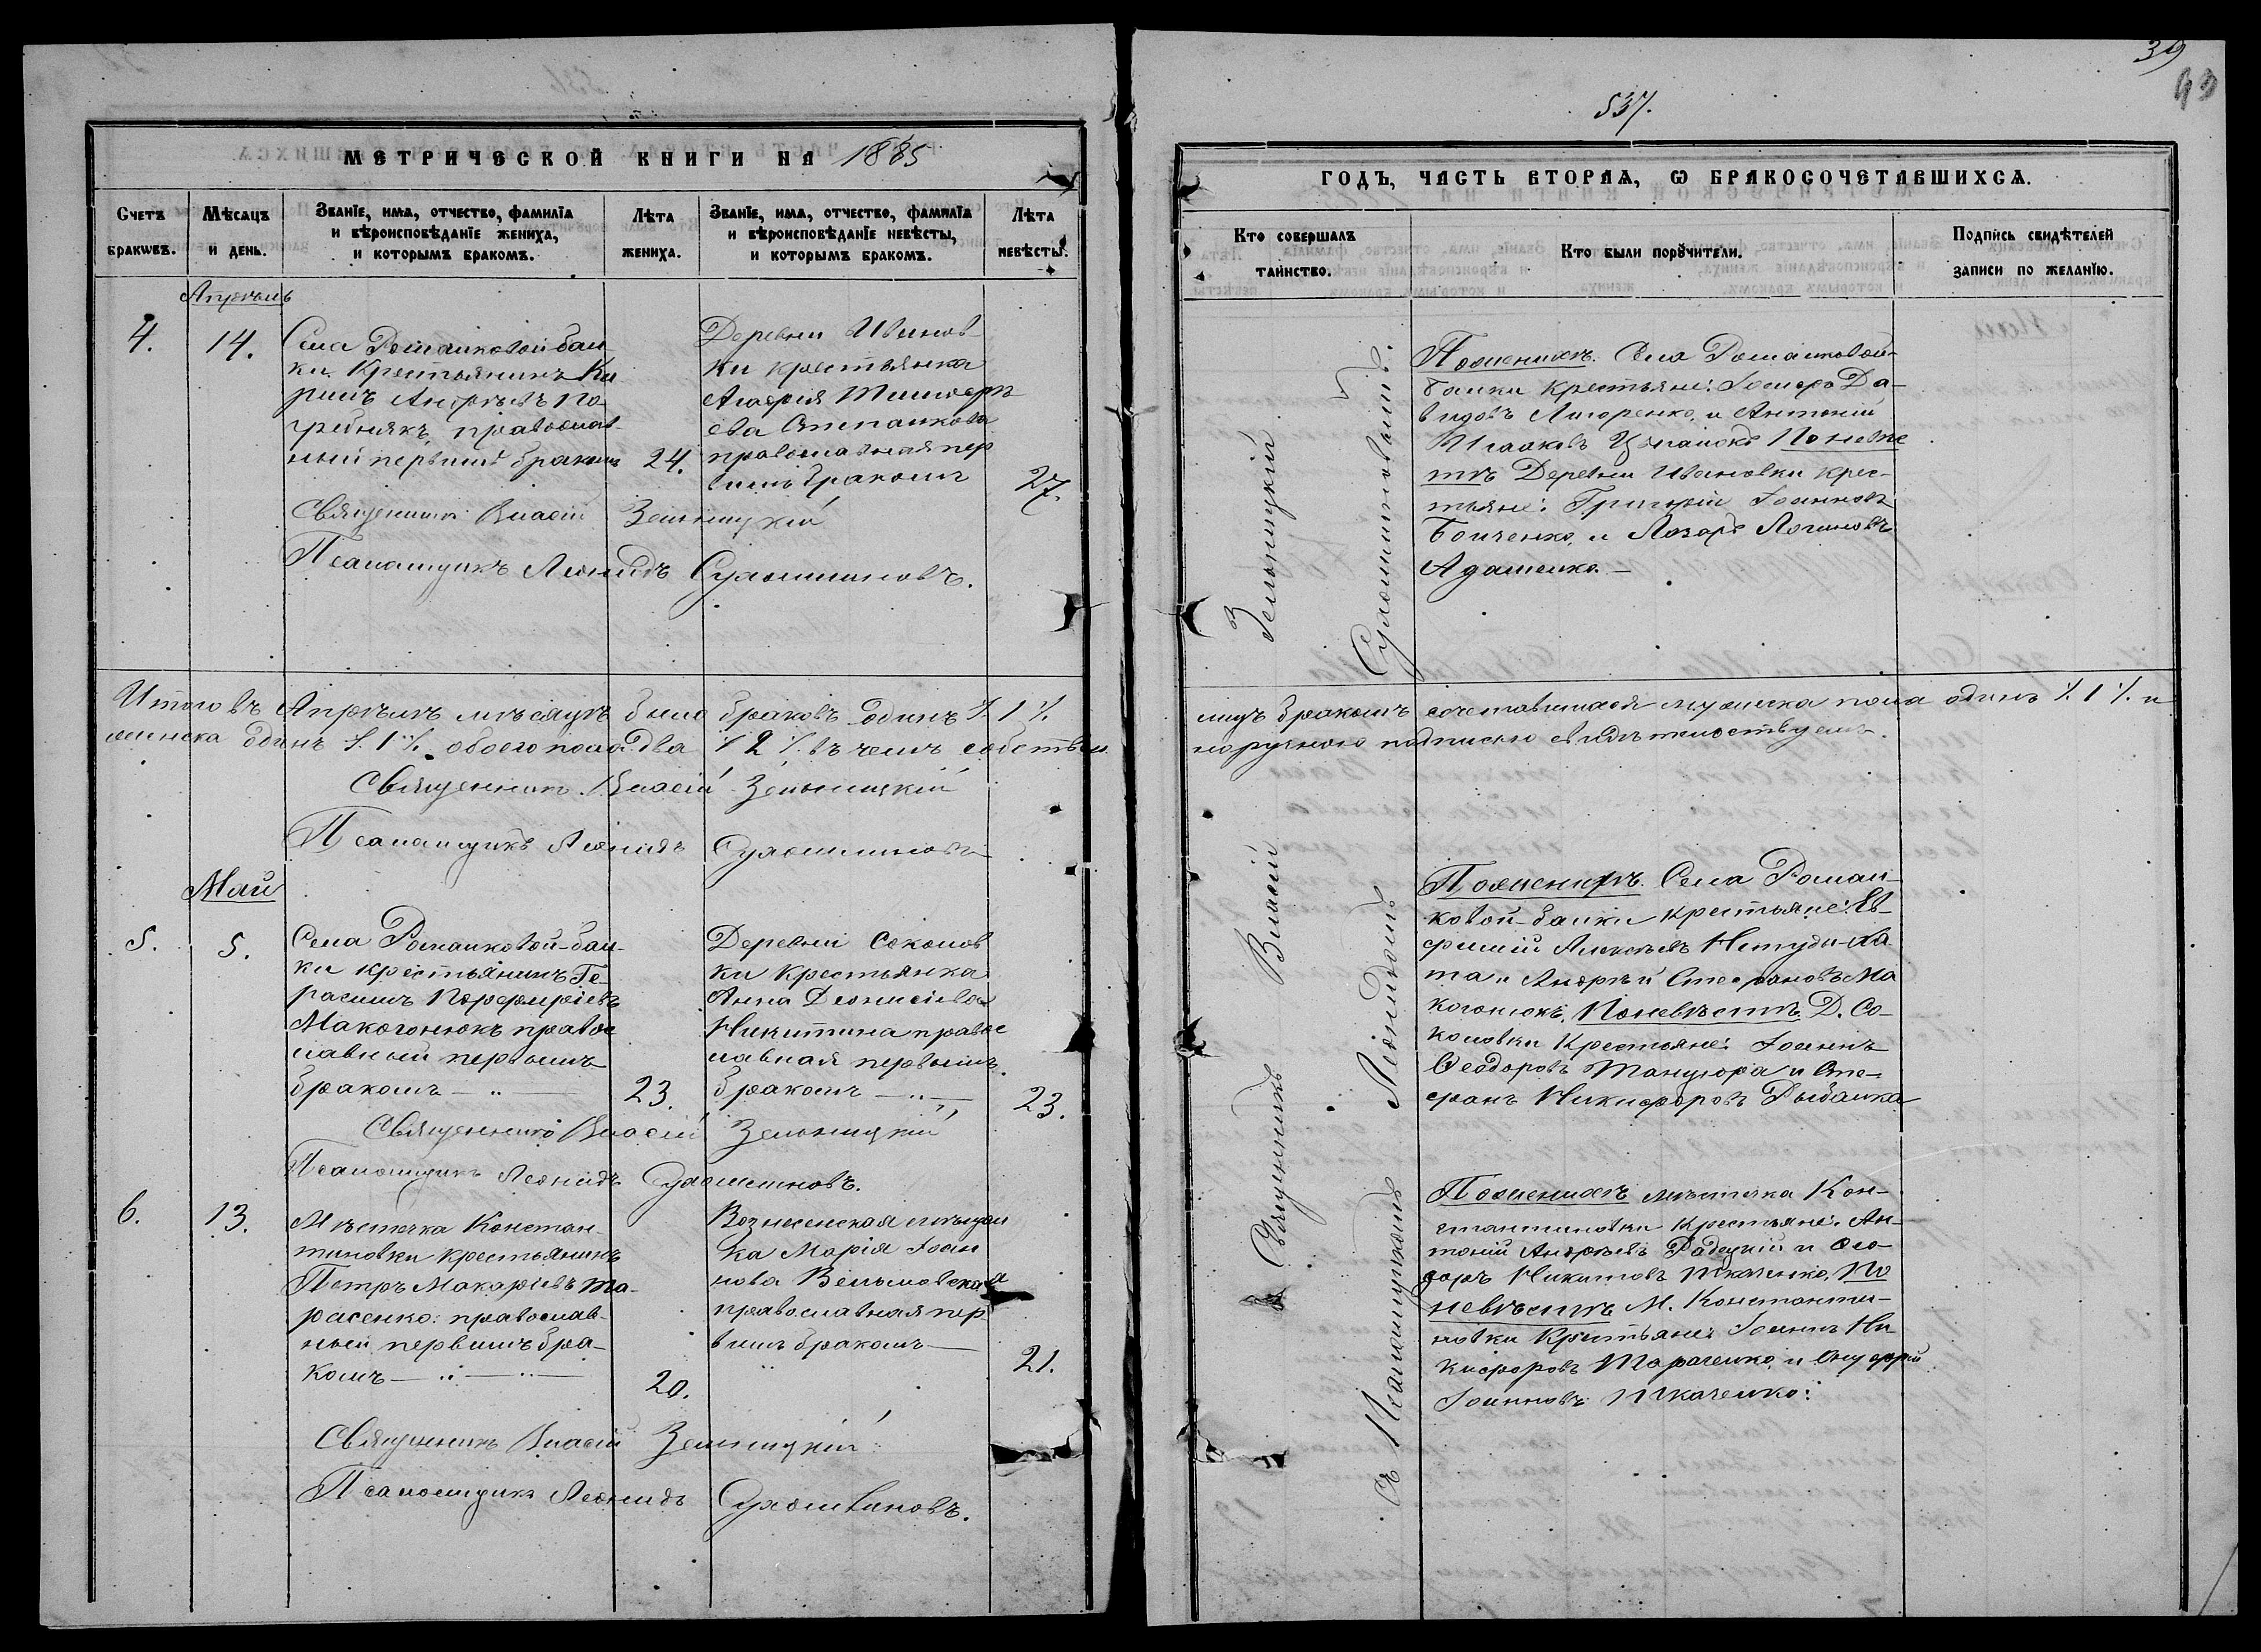 39
43
537.
МЕТРИЧЕСКОЙ КНИГИ НА 1885
Счетъ бракѡвъ.
Мѣсяцъ и день.
Званїе, имѧ, отчество, фамилїѧ и вѣроисповѣданїе жениха, и которымъ бракомъ.
Лѣта жениха.
Званїе, имѧ, отчество, фамилїѧ и вѣроисповѣданїе невѣсты, и которымъ бракомъ.
Лѣта невѣсты.
Апрѣль
4.
14.
Села Романковой-бал-
ки Крестьянинъ Ки
рилъ Андреевъ По
гребнякъ, православ
ный первымъ бракомъ
24.
Деревни Иванов
ки крестьянка
Агафія Тимофе
ева Степанкова
православная пер
вымъ бракомъ
27.
Священникъ Власій Зельницкій
Псаломщикъ Леонидъ Сухомлиновъ.
Итого въ Апрѣлѣ мѣсяцѣ было браковъ одинъ % 1 %
женска одинъ % 1 % обоего пола два % 2 % въ чемъ собствен
Священникъ Власій Зельницкій
Псаломщикъ Леонидъ Сухомлиновъ
Май
5.
5.
Села Романковой-бал-
ки крестьянинъ Ге-
расимъ Порфиріевъ
Макогонюкъ правос
лавный первымъ
бракомъ
23.
Деревни Соколов
ки Крестьянка
Анна Деонисіева
Никитина правос
лавная первымъ
бракомъ
23.
Священникъ Власій Зельницкій
Псаломщикъ Леонидъ Сухомлиновъ.
6.
13.
Мѣстечка Констан
тиновки крестьянинъ
Петръ Макаріевъ Та-
расенко: православ-
ный первымъ бра-
комъ
20.
Вознесенская мѣщан
ка Марія Іоан
нова Вельмовская
православная пер
вымъ бракомъ
21.
Священникъ Власій Зельницкій
Псаломщикъ Леонидъ Сухомлиновъ.
ГОДЪ, ЧАСТЬ ВТОРАѦ, Ѡ БРАКОСОЧЕТАВШИХСѦ.
Кто совершалъ таинство.
Кто были порꙋчители.
Подпись свидѣтелей записи по желанїю.
Священникъ Власій Зельницкій
съ Псаломщикомъ Леонидомъ Сухомлиновымъ.
По женихѣ. Села Романковой-
балки крестьяне: Іосифъ Да-
видовъ и Антоній
Исааковъ По невѣс
тѣ Деревни Ивановки крес-
тьяне: Григорій Іоанновъ
Бойченко, и Лазарь Логиновъ
Адаменко.
лицъ бракомъ сочетавшихся мужеска пола одинъ % 1 % и
норучною подписью свидѣтельствуемъ.
По женихѣ. Села Роман-
ковой-балки крестьяне: Ев-
фимій Алексѣевъ Непуди-ха-
та и Андрей Стефановъ Ма
когонюкъ, По невѣстѣ Д. Со-
коловки Крестьяне: Іоаннъ
Ѳеодоровъ Танцюра и Сте-
фанъ Никифоровъ Рыбалка
По женихѣ мѣстечка Кон-
стантиновки Крестьяне: Ан-
тоній Андреевъ Радецкій и Ѳео-
доръ Никитовъ Ткаченко. По
невѣстѣ М. Константи-
новки Крестьяне Іоаннъ Ни
кифоровъ Тарасенко и Онуфрій
Іоанновъ Ткаченко: